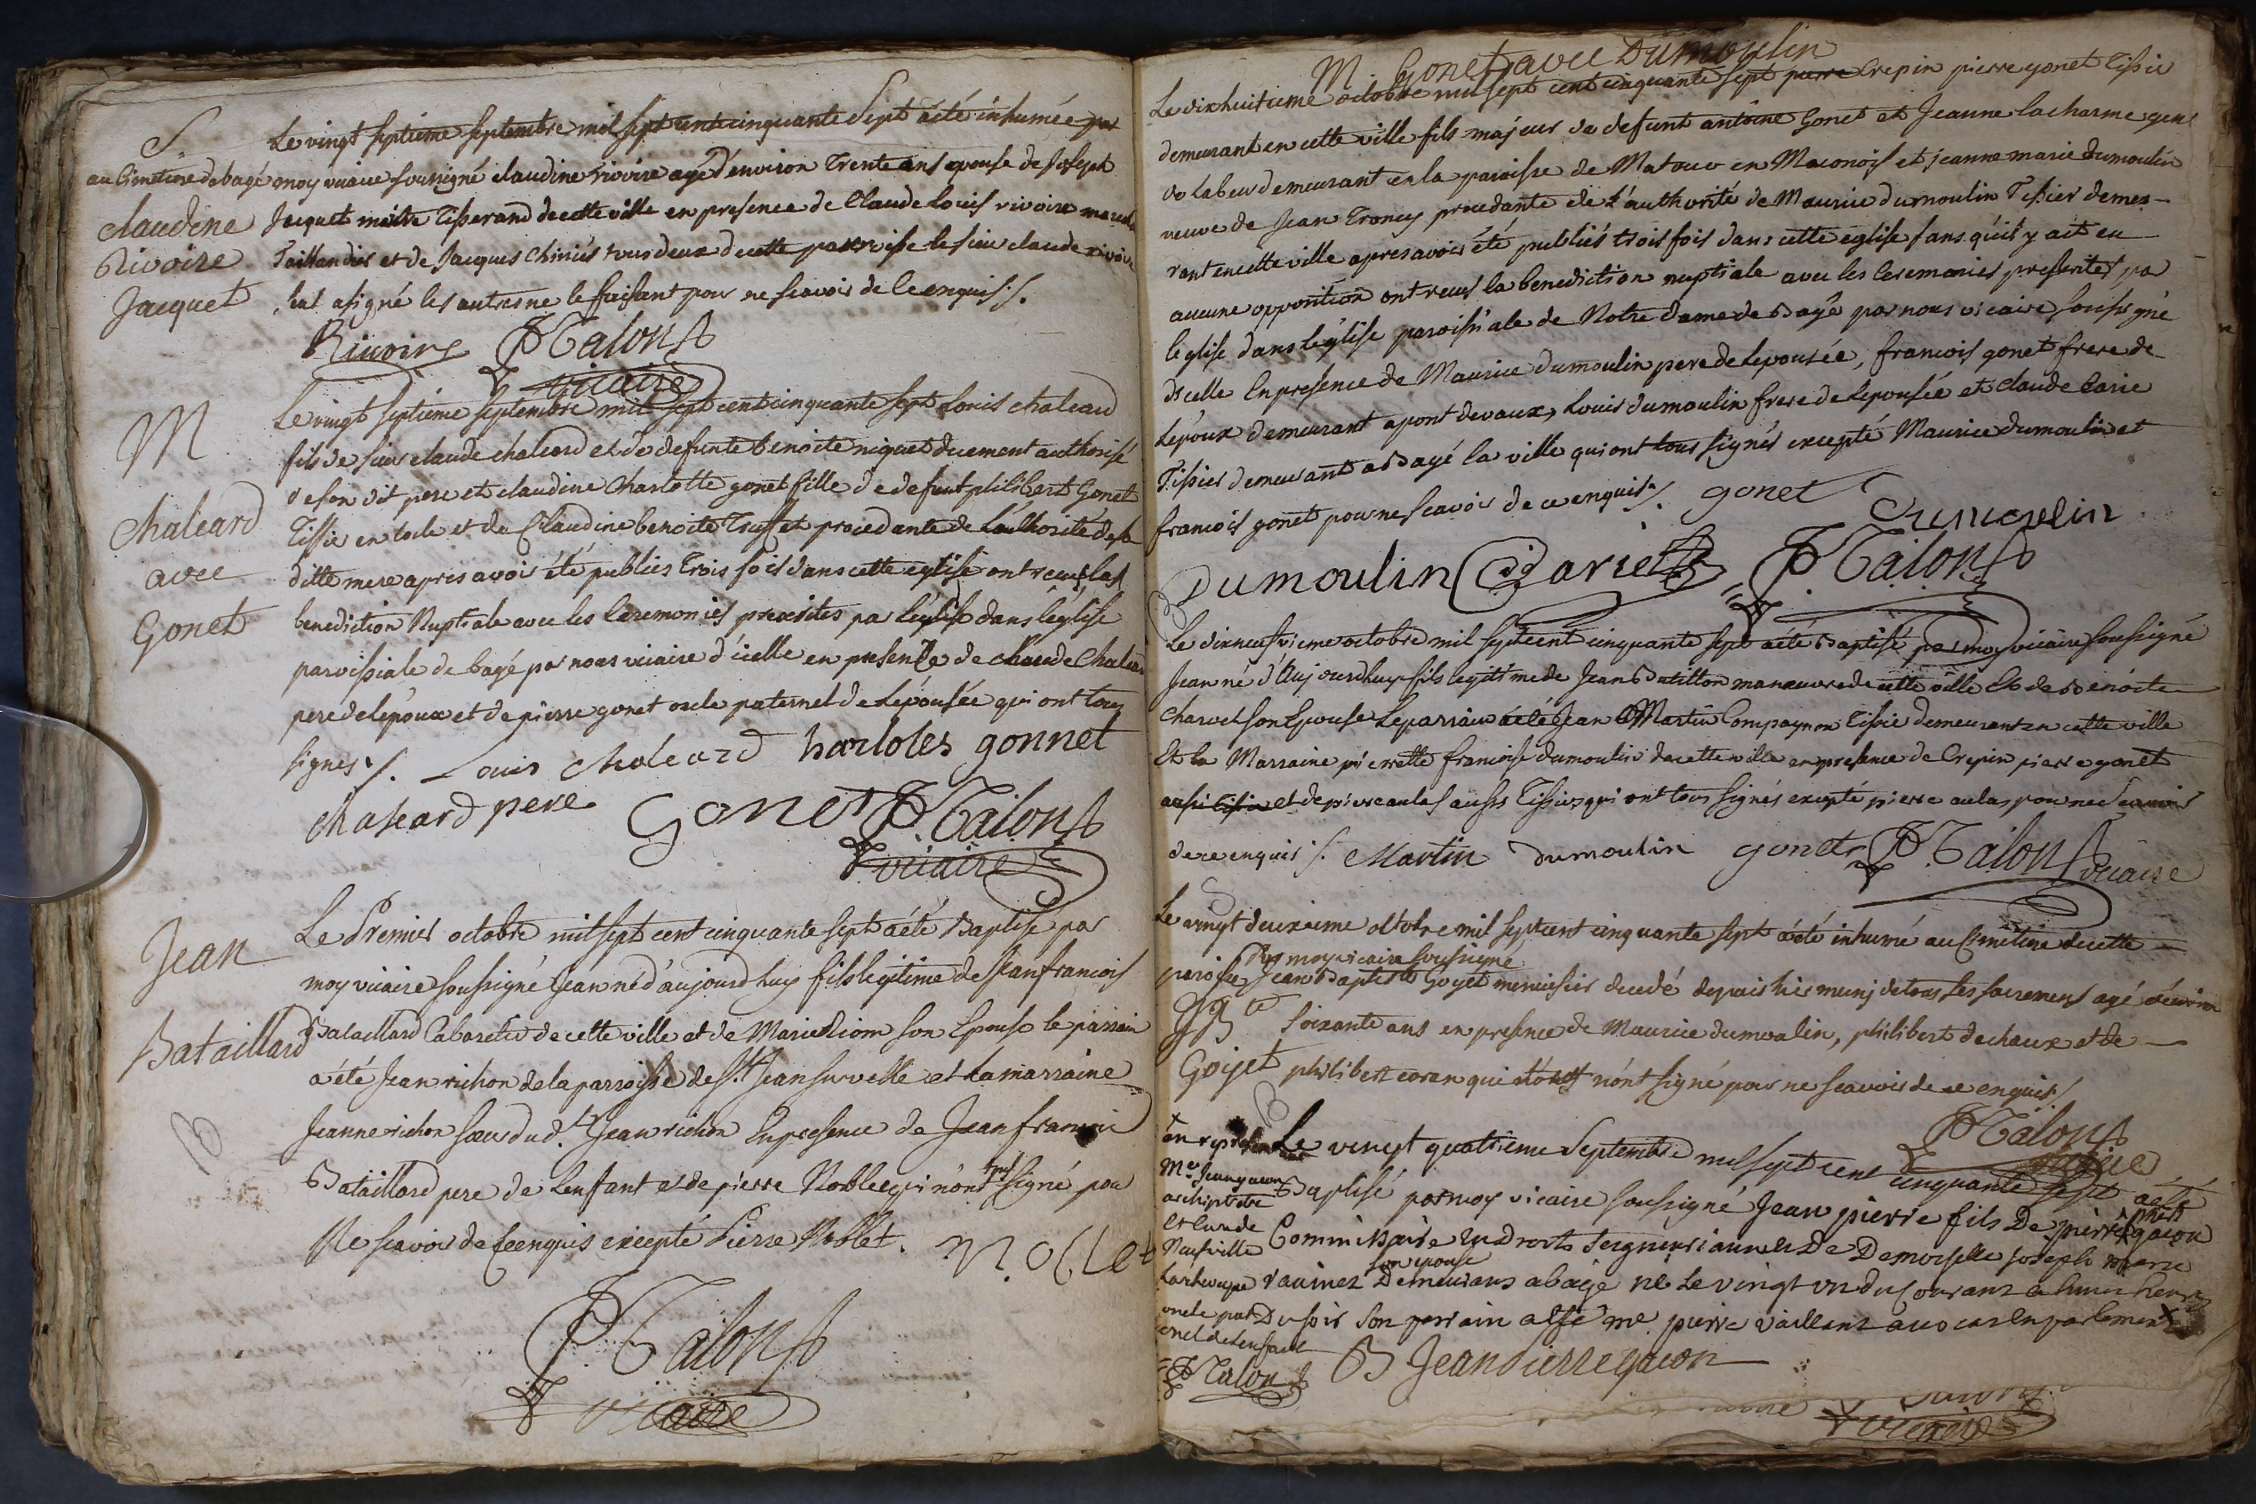 S.
au Cimetiere de bagé
claudine
Rivoire
Jacquet
Le vingt septieme septembre mil sept cent cinquante sept a été inhumée par
moy vicaire soussigné claudine rivoire agé d'environ trente ans epouse de joseph
Jacquet maitre Tisserand de cette ville en presence de Claude Louis rivoire
Taillandier et de Jacques tous deux de cette parroisse le sieur claude rivoire
a signé les autres ne le faisant pour ne scavoir de ce enquis ./.
Rivoire PTalon
vicaire
M
Chaleard
avec
Gonet
Le vingt septieme septembre mil sept cent cinquante sept Louis chaleard
fils de sieur claude chaleard et de defunte benoite niquet duement authorisé
de son dit pere et claudine Charlotte gonet fille de defunt philibert Gonet
Tissier en toile et de Claudine benoite procedante de Lauthorité de sa
ditte mere apres avoir été publiés trois fois dans cette eglise ont recus la
benediction Nuptiale avec les Ceremonies prescrites par leglise dans léglise
paroissiale de bagé par nous vicaire d'icelle en presence de Claude Chaleard
pere de lepoux et de pierre gonet oncle paternel de Lépousée qui ont tous
signes ./. Louis chaleard harlotes gonnet
chaleard pere Gonet PTalon
vicaire
Jean
Bataillard
B
Le Premier octobre mil sept cent cinquante sept a été Baptisé par
moy vicaire soussigné Jean né d'aujourd'huy fils legitime de Jean francois
Bataillard Cabaretier de cette ville et de Marie son Epouse le parrain
a été Jean richon de la parroisse de St Jean surveille et La marraine
Jeanne richon soeur dud.t Jean richon En presence de Jean francois
Bataillard pere de Lenfant et de pierre Noblet qui n'ont signé pour
Ne scavoir de ce enquis excepté Pierre Noblet. noblet
PTalon
vicaire
M. Gonet avec Dumoulin
Le dixhuitieme octobre mil sept cent cinquante sept pierre Crepin pierre gonet Tissier
demeurant en cette ville fils majeur de defunt antoine Gonet et Jeanne lacharme gens
de Labeur demeurant en la paroisse de Matour en Maconois et jeanne marie dumoulin
veuve de Jean Troncy procedante de L'authorité de Maurice dumoulin Tissier demeu-
rant en cette ville apres avoir été publiés trois fois dans cette eglise sans qu'il y ait eu
aucune opposition ont recus la benediction nuptiale avec les Ceremonies prescrites par
leglise dans l'eglise paroissiale de Notre dame de Bagé par nous vicaire soussigné
d'icelle En presence de Maurice dumoulin pere de Lepousée, francois gonet frere de
Lépoux demeurant a pont devaux, Louis dumoulin frere de Lepousée et claude Carie
Tissier demeurant a Bagé la ville qui ont tous signés excepté Maurice dumoulin et
francois gonet pour ne scavoir de ce enquis ./. gonet Dumoulin
Dumoulin Carie PTalon
B
Le dixneufvieme octobre mil sept cent cinquante sept a été Baptisé par moy vicaire soussigné
Jean né d'Aujourdhuy fils legitime de Jean Batillon manoeuvre de cette ville et de Benoite
Charvet son Epouse Le parrain a été Jean Martin Compagnon Tissier demeurant en cette ville
Et la Marraine pierrette francoise dumoulin de cette ville en presence de Crepin pierre gonet
aussi Tissier et de pierre aulas aussy Tissier qui ont tous signés excepté pierre aulas pour ne scavoir
de ce enquis ./. Martin dumoulin gonet PTalon vicaire
S
Le vingt deuxieme octobre mil sept cent cinquante sept a été inhumé au Cimetiere de cette
Par moy vicaire soussigné
paroisse Jean Baptiste Goyet menuisier decedé depuis hier muni de tous les sacrements agé d'environ
soixante ans en presence de Maurice dumoulin, philibert dechaux et de
Goyet philibert qui n'ont signé pour ne scavoir de ce enquis ./.
PTalon
vicaire
B
Le vingt quatrieme Septembre mil sept cent cinquante sept a été
Baptisé par moy vicaire soussigné Jean pierre fils De pierre gacon
Commissaire En droits seigneuriaux et De Demoiselle joseph marie
son epouse
Demeurans a bagé né Le vingt un du Courant a huit heures
Du soir Son parrain a été me pierre vaillant avocat En parlement
B Jean Pierre gacon
Me Jean gacon
archiprêtre
Et Curé de
Neufville
oncle pater
nel de lenfant
PTalon
vicaire